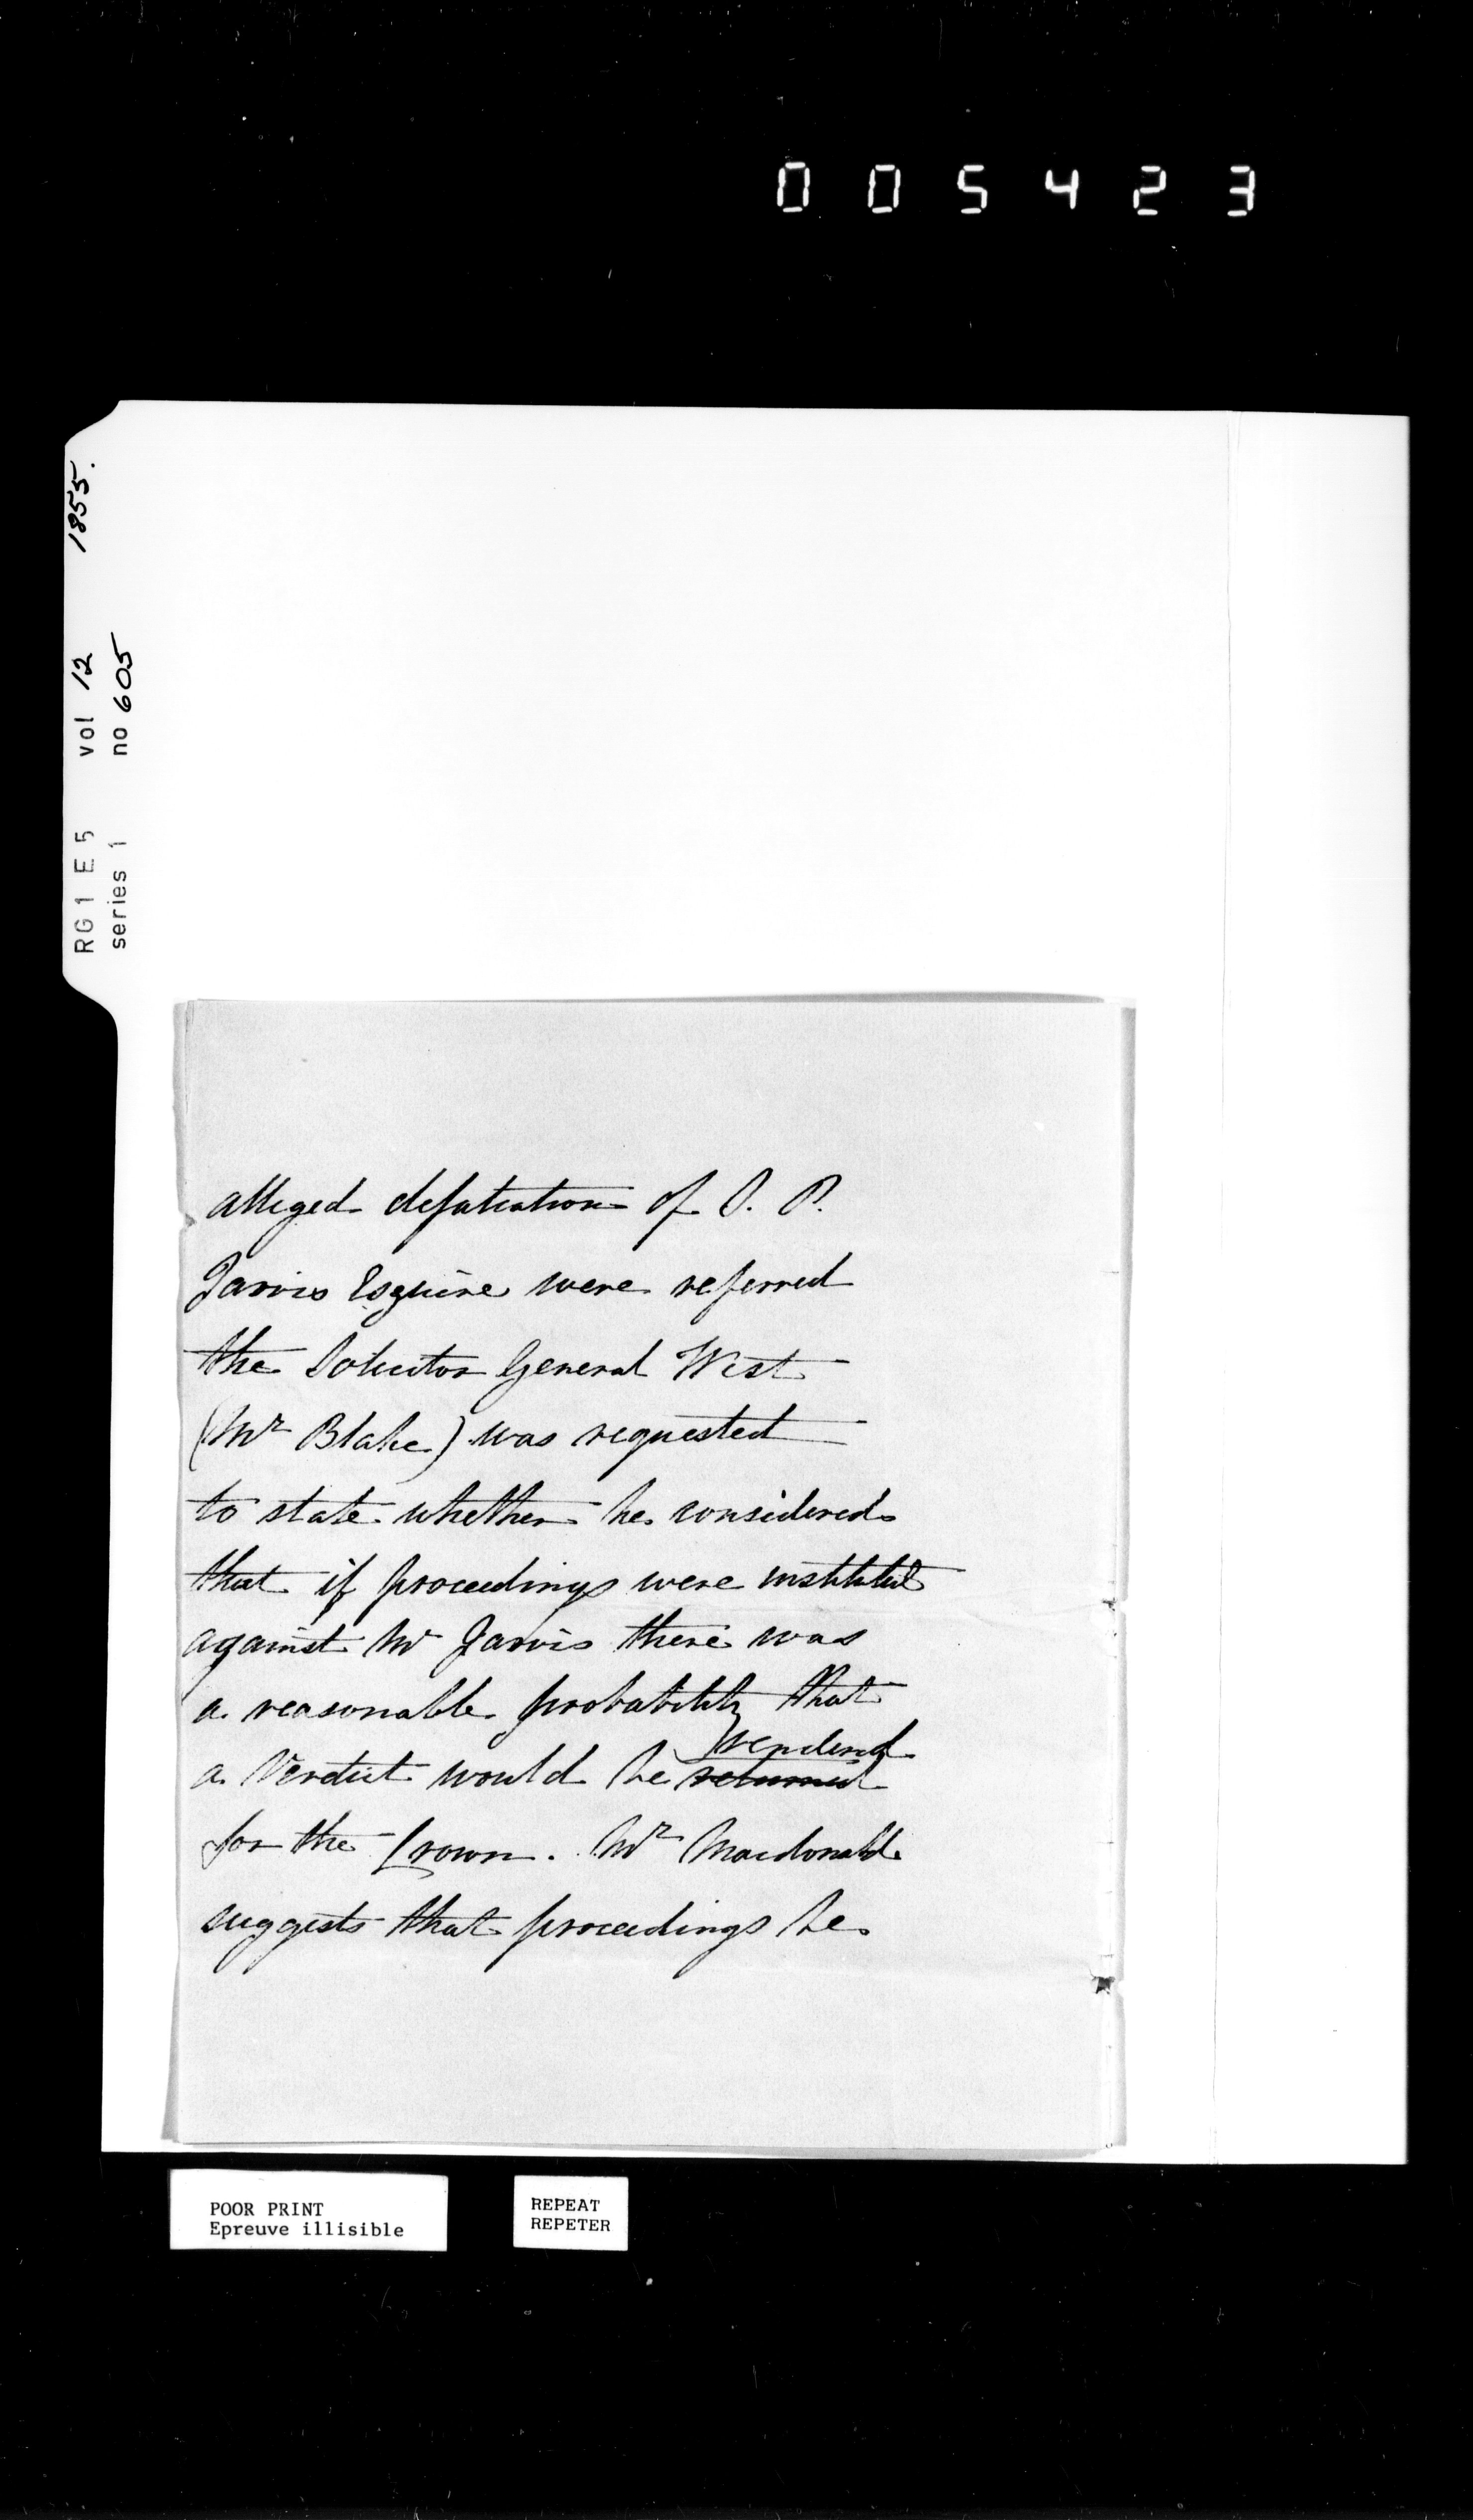 005423
1855.
RG1 E5 vol 12
series 1 no 605
alleged defalcation of S. P.
Jarvis Esquire were referred
the Solicitor General West
(Mr Blake) was requested
to state whether he considered
that if proceedings were instituted
against Mr Jarvis there was
a reasonable probability that
rendered
a Verdict would be returned
for the Crown. Mr Macdonald
suggests that proceedings be
POOR PRINT
Epreuve illisible
REPEAT
REPETER